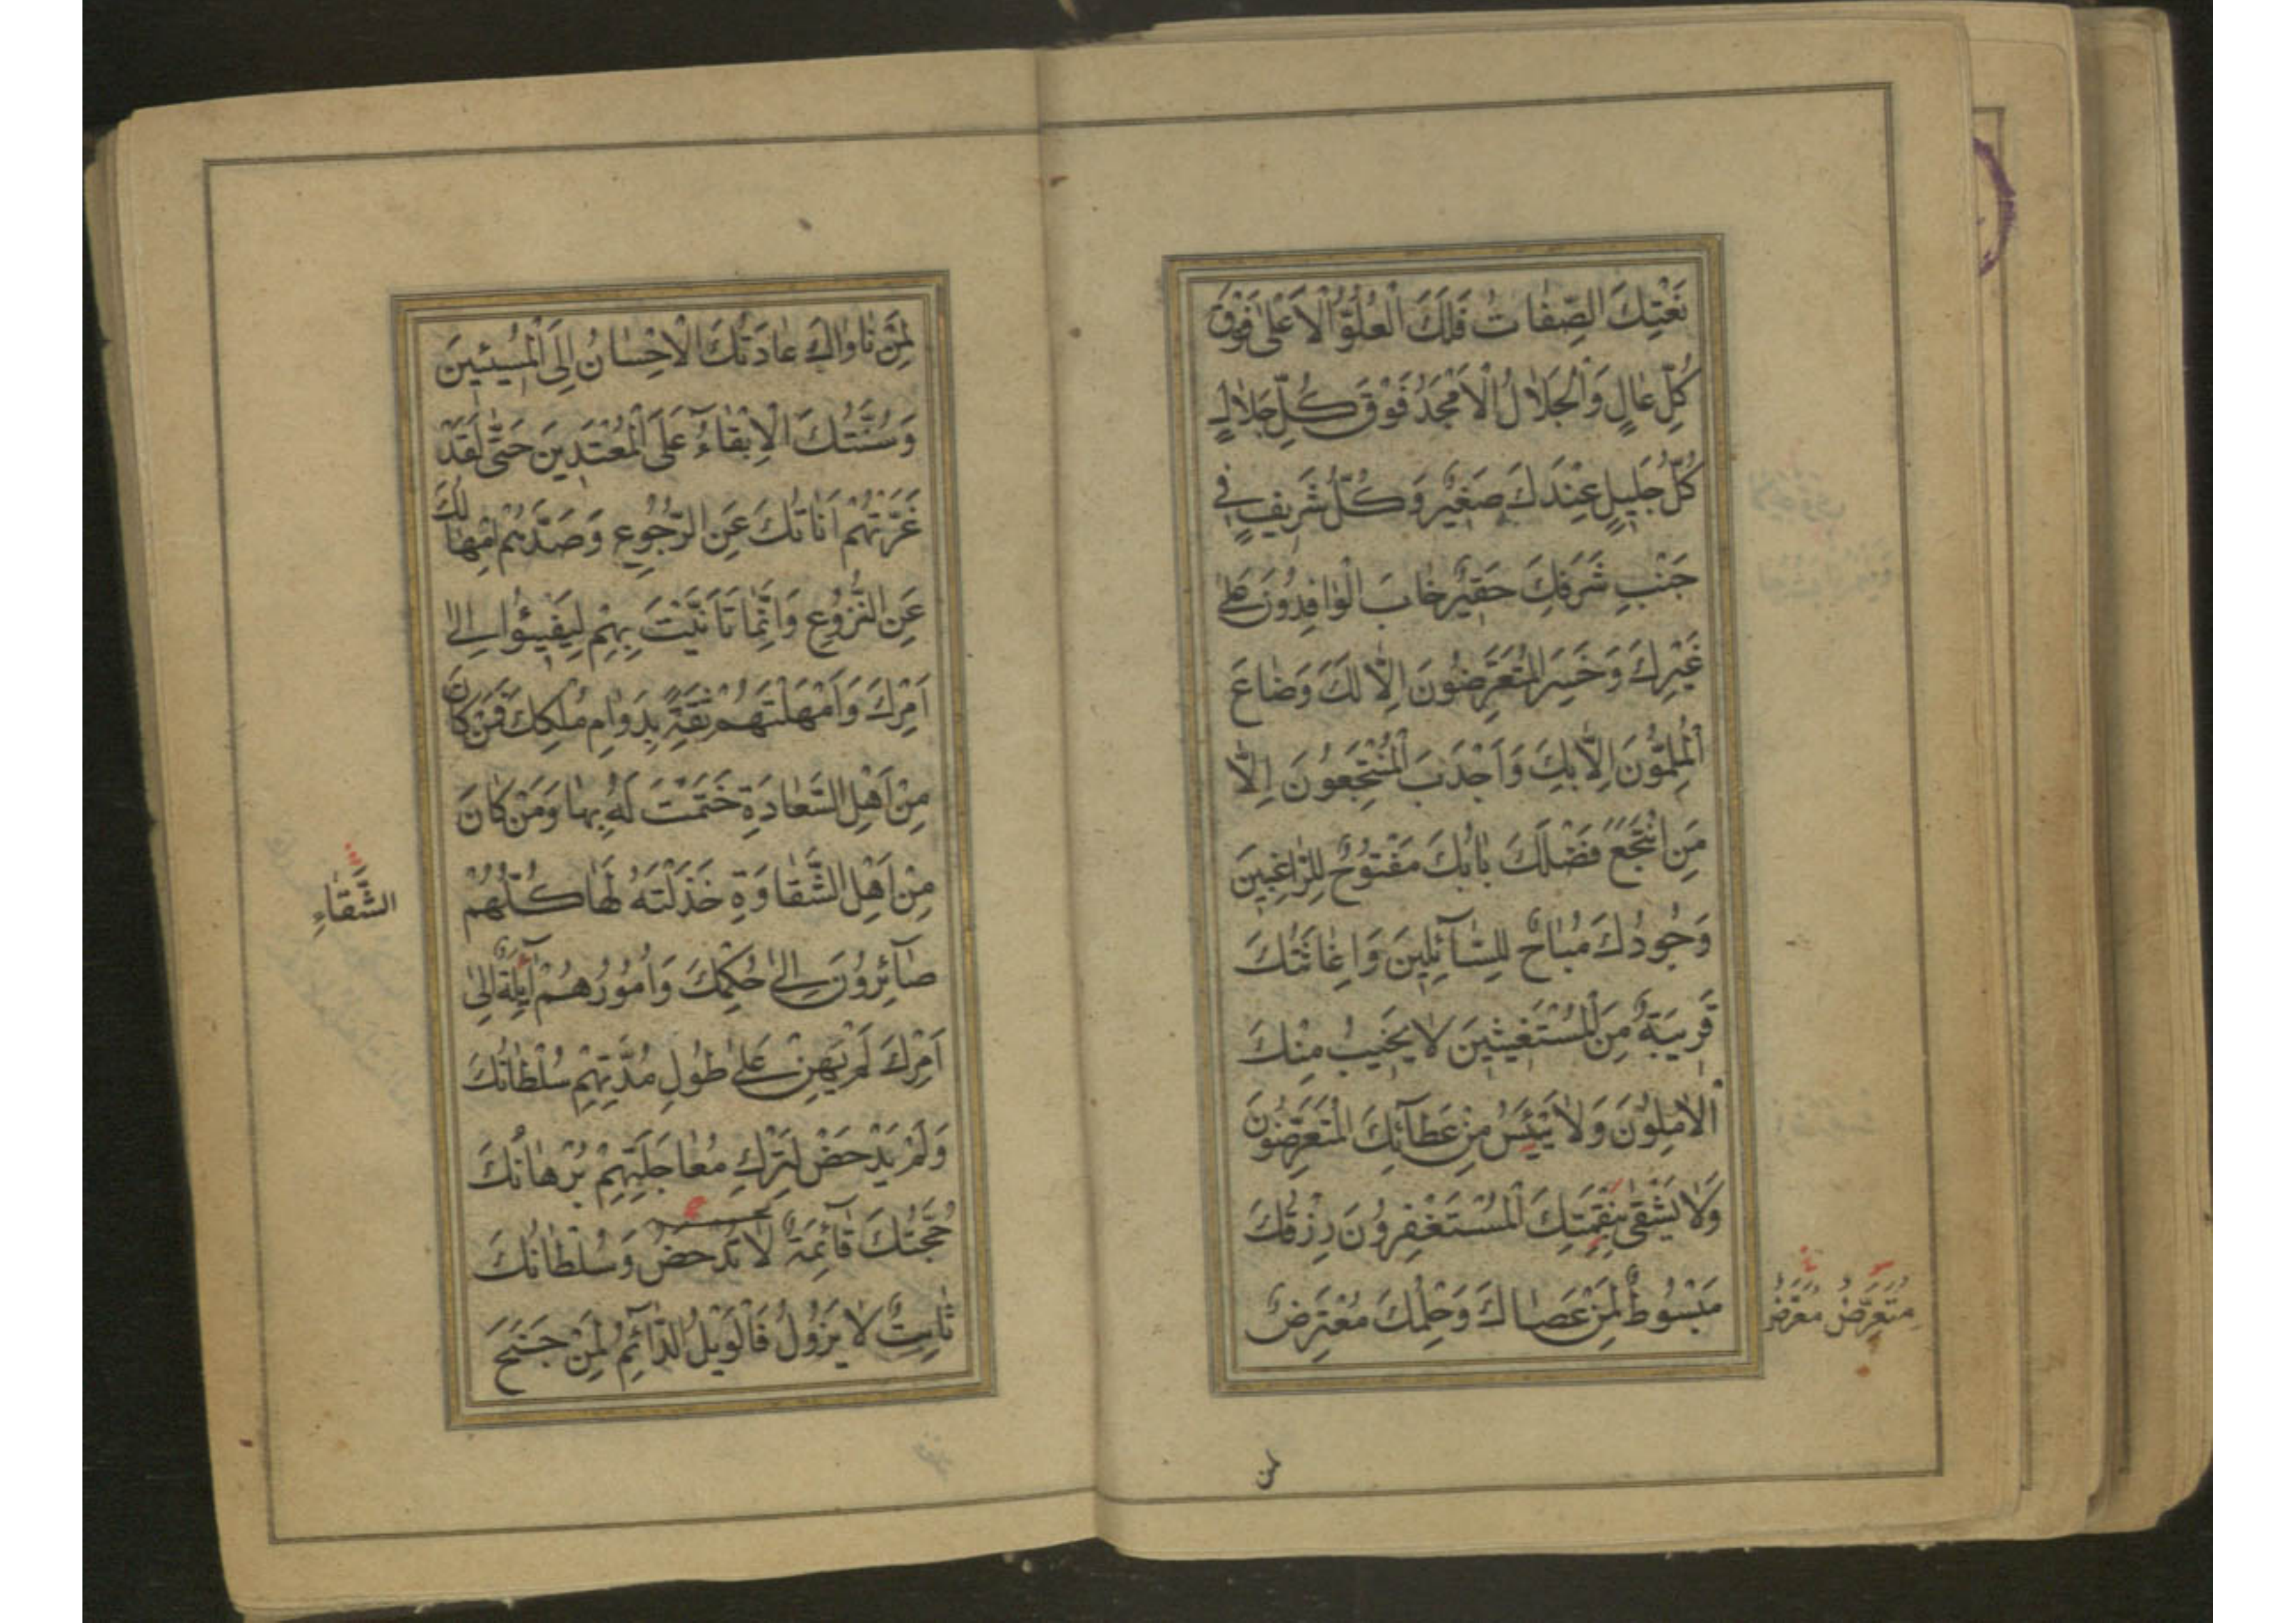 نَعْتِكَ الصِّفَاتُ فَلَكَ الْعُلُوُّ الْاَعْلٰى فَوْقَ
كُلِّ عَالٍ وَالْجَلَالُ الْاَمْجَدُ فَوْقَ كُلِّ جَلَالٍ
كُلُّ جَلِيلٍ عِنْدَكَ صَغِيرٌ وَكُلُّ شَرِيفٍ فِي
جَنْبِ شَرَفِكَ حَقِيرٌ خَابَ الْوَافِدُونَ عَلٰى
غَيْرِكَ وَخَسِرَ الْمُتَعَرِّضُونَ اِلَّا لَكَ وَضَاعَ
الْمُلِمُّونَ اِلَّا بِكَ وَاَجْدَبَ الْمُنْتَجِعُونَ اِلَّا
مَنِ انْتَجَعَ فَضْلَكَ بَابُكَ مَفْتُوحٌ لِلرَّاغِبِينَ
وَجُودُكَ مُبَاحٌ لِلسَّآئِلِينَ وَاِغَاثَتُكَ
قَرِيبَةٌ مِنَ الْمُسْتَغِيثِينَ لَا يَخِيبُ مِنْكَ
الْاٰمِلُونَ وَلَا يَيْئَسُ مِنْ عَطَآئِكَ الْمُتَعَرِّضُونَ
وَلَا يَشْقٰى بِنَقِمَتِكَ الْمُسْتَغْفِرُونَ رِزْقُكَ
مَبْسُوطٌ لِمَنْ عَصَاكَ وَحِلْمُكَ مُعْتَرِضٌ
مُتَعَرِّضٌ مُعْرَضٌ
لمن
لِمَنْ نَاوَاكَ عَادَتُكَ الْاِحْسَانُ اِلَى الْمُسِيئِينَ
وَسُنَّتُكَ الْاِبْقَآءُ عَلَى الْمُعْتَدِينَ حَتّٰى لَقَدْ
غَرَّتْهُمْ اَنَاتُكَ عَنِ الرُّجُوعِ وَصَدَّهُمْ اِمْهَالُكَ
عَنِ النُّزُوعِ وَاِنَّمَا تَاَنَّيْتَ بِهِمْ لِيَفِيئُوا اِلٰى
اَمْرِكَ وَاَمْهَلْتَهُمْ ثِقَةً بِدَوَامِ مُلْكِكَ فَمَنْ كَانَ
مِنْ اَهْلِ السَّعَادَةِ خَتَمْتَ لَهُ بِهَا وَمَنْ كَانَ
مِنْ اَهْلِ الشَّقَاوَةِ خَذَلْتَهُ لَهَا كُلُّهُمْ
الشَّقَاءِ
صَآئِرُونَ اِلٰى حُكْمِكَ وَاُمُورُهُمْ اٰئِلَةٌ اِلٰى
اَمْرِكَ لَمْ يَهِنْ عَلٰى طُولِ مُدَّتِهِمْ سُلْطَانُكَ
وَلَمْ يَدْحَضْ لِتَرْكِ مُعَاجَلَتِهِمْ بُرْهَانُكَ
حُجَّتُكَ قَآئِمَةٌ لَا تُدْحَضُ وَسُلْطَانُكَ
ثَابِتٌ لَا يَزُولُ فَالْوَيْلُ الدَّآئِمُ لِمَنْ جَنَحَ